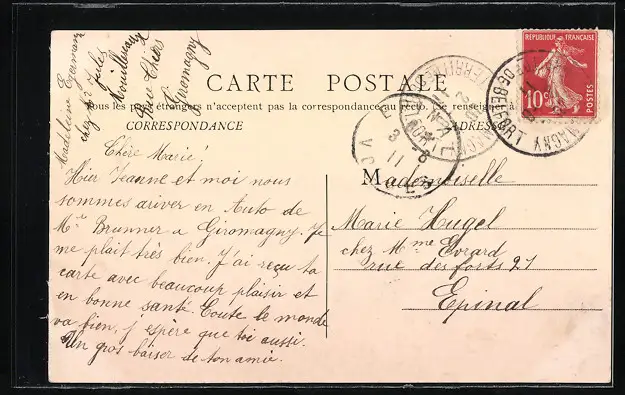 CARTE POSTALE
Tous les pays étrangers n'acceptent pas la correspondance au recto. (Se renseigner à
CORRESPONDANCE
ADRESSE
RÉPUBLIQUE FRANÇAISE
10c
POSTES
DE BELFORT
Madeleine
chez Mr Jules
Giromagny
Chère Marie!
Hier Jeanne et moi nous
sommes ariver en Auto de
Mr Brunner a Giromagny. Je
me plait très bien. J'ai reçu ta
carte avec beaucoup plaisir et
en bonne santé. Toute le monde
va bien, j'espère que toi aussi.
Un gros baiser de ton amie.
Mademoiselle
Marie Hugel
chez Mme Evrard
rue des forts 21
Epinal